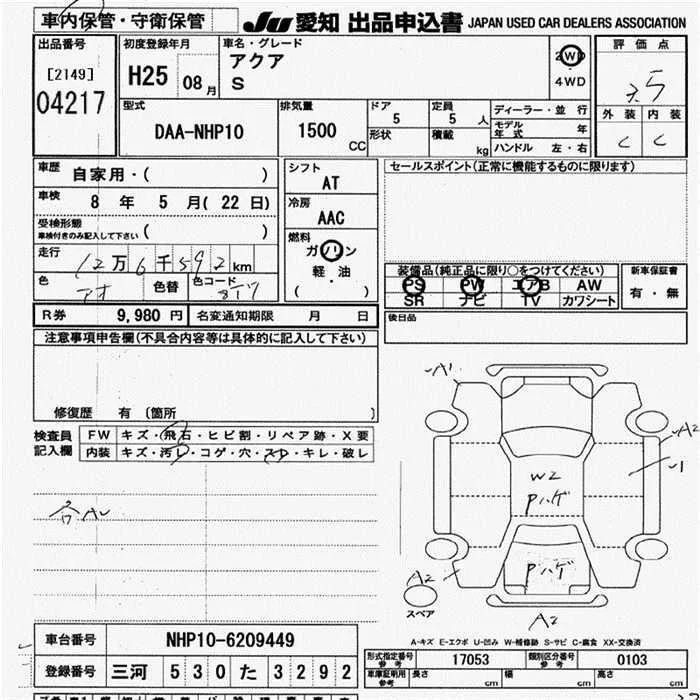 車内保管・守衛保管
JU 愛知 出品申込書 JAPAN USED CAR DEALERS ASSOCIATION
出品番号
[2149]
04217
初度登録年月
H25 08月
車名・グレード
アクア
S
2WD
4WD
評価点
3.5
外装 内装
C C
型式
DAA-NHP10
排気量
1500 CC
ドア
5
形状
定員
5 人
積載
kg
ディーラー・並行
モデル年式 年
ハンドル 左・右
車歴
自家用・( )
車検
8 年 5 月( 22 日)
受検形態
車検付きのみ記入して下さい ( )
走行
12万6千592km
色
アオ
色替
色コード
8T7
シフト
AT
冷房
AAC
燃料
ガソリン
軽・油
( )
セールスポイント(正常に機能するものに限ります)
装備品(純正品に限り○をつけてください)
PS PW エアB AW
SR ナビ TV カワシート
新車保証書
有・無
後日品
R券 9,980 円 名変通知期限 月 日
注意事項申告欄(不具合内容等は具体的に記入して下さい)
修復歴 有〔箇所 〕
検査員記入欄
FW キズ・飛石・ヒビ割・リペア跡・X要
内装 キズ・汚レ・コゲ・穴・スレ・キレ・破レ
A1
A2
U1
W2
Pハゲ
Pハゲ
A2
A2
スペア
A-キズ E-エクボ U-凹み W-補修跡 S-サビ C-腐食 XX-交換済
車台番号 NHP10-6209449
登録番号 三河 530 た 3292
形式指定番号 参考 17053 類別区分番号 参考 0103
車庫証明用 参考 長さ cm 幅 cm 高さ cm